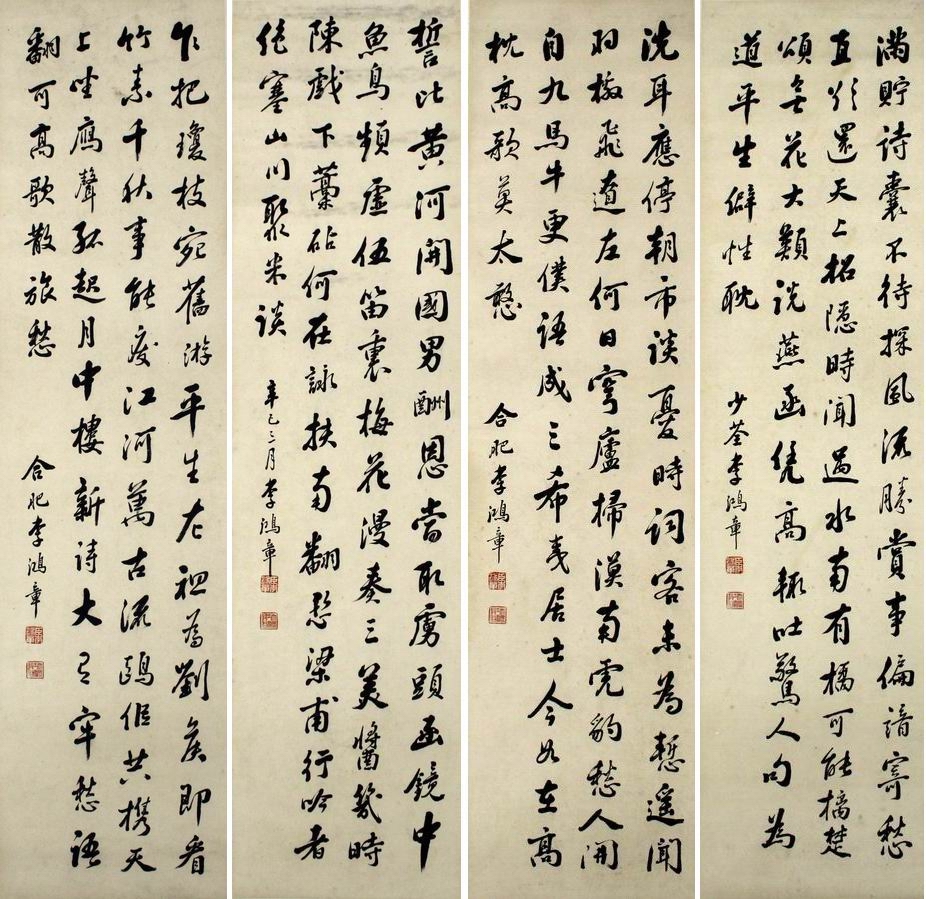 滿貯詩囊不待探風流勝賞事偏諳寄愁
直欲還天上招隱時聞過水南有橘可能摘楚
頌無花大類説燕函凭高輒吐驚人句為
道平生僻性耽
少荃李鴻章
洗耳應停朝市談憂時詞客未為慙遥聞
羽檄飛邊左何日穹廬掃漠南虎豹愁人開
自九馬牛更僕語成三希夷居士今如在高
枕高歌莫太憨
合肥李鴻章
誓比黄河開國男酬恩當取虜頭函鏡中
魚鳥頻虛伍笛裏梅花漫奏三美醬幾時
陳戲下藁砧何在詠扶南翻愁梁甫行吟者
塞山川聚米談
辛巳三月李鴻章
乍把瓊枝宛舊游平生左袒為劉侯即看
竹素千秋事能廢江河萬古流鷗侶共携天
上坐鴈聲孤起月中樓新詩大有牢愁語
翻可高歌散旅愁
合肥李鴻章